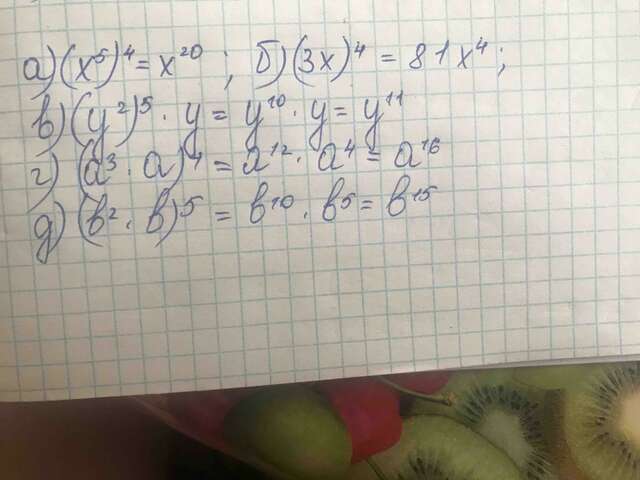 а) (x⁵)⁴ = x²⁰ ; б) (3x)⁴ = 81x⁴ ;
в) (y²)⁵ · y = y¹⁰ · y = y¹¹
г) (a³ · a)⁴ = a¹² · a⁴ = a¹⁶
д) (b² · b)⁵ = b¹⁰ · b⁵ = b¹⁵